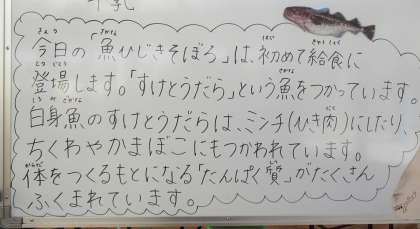 牛乳
今日の「魚ひじきそぼろ」は、初めて給食に
登場します。「すけとうだら」という魚をつかっています。
白身魚のすけとうだらは、ミンチ(ひき肉)にしたり、
ちくわやかまぼこにもつかわれています。
体をつくるもとになる「たんぱく質」がたくさん
ふくまれています。